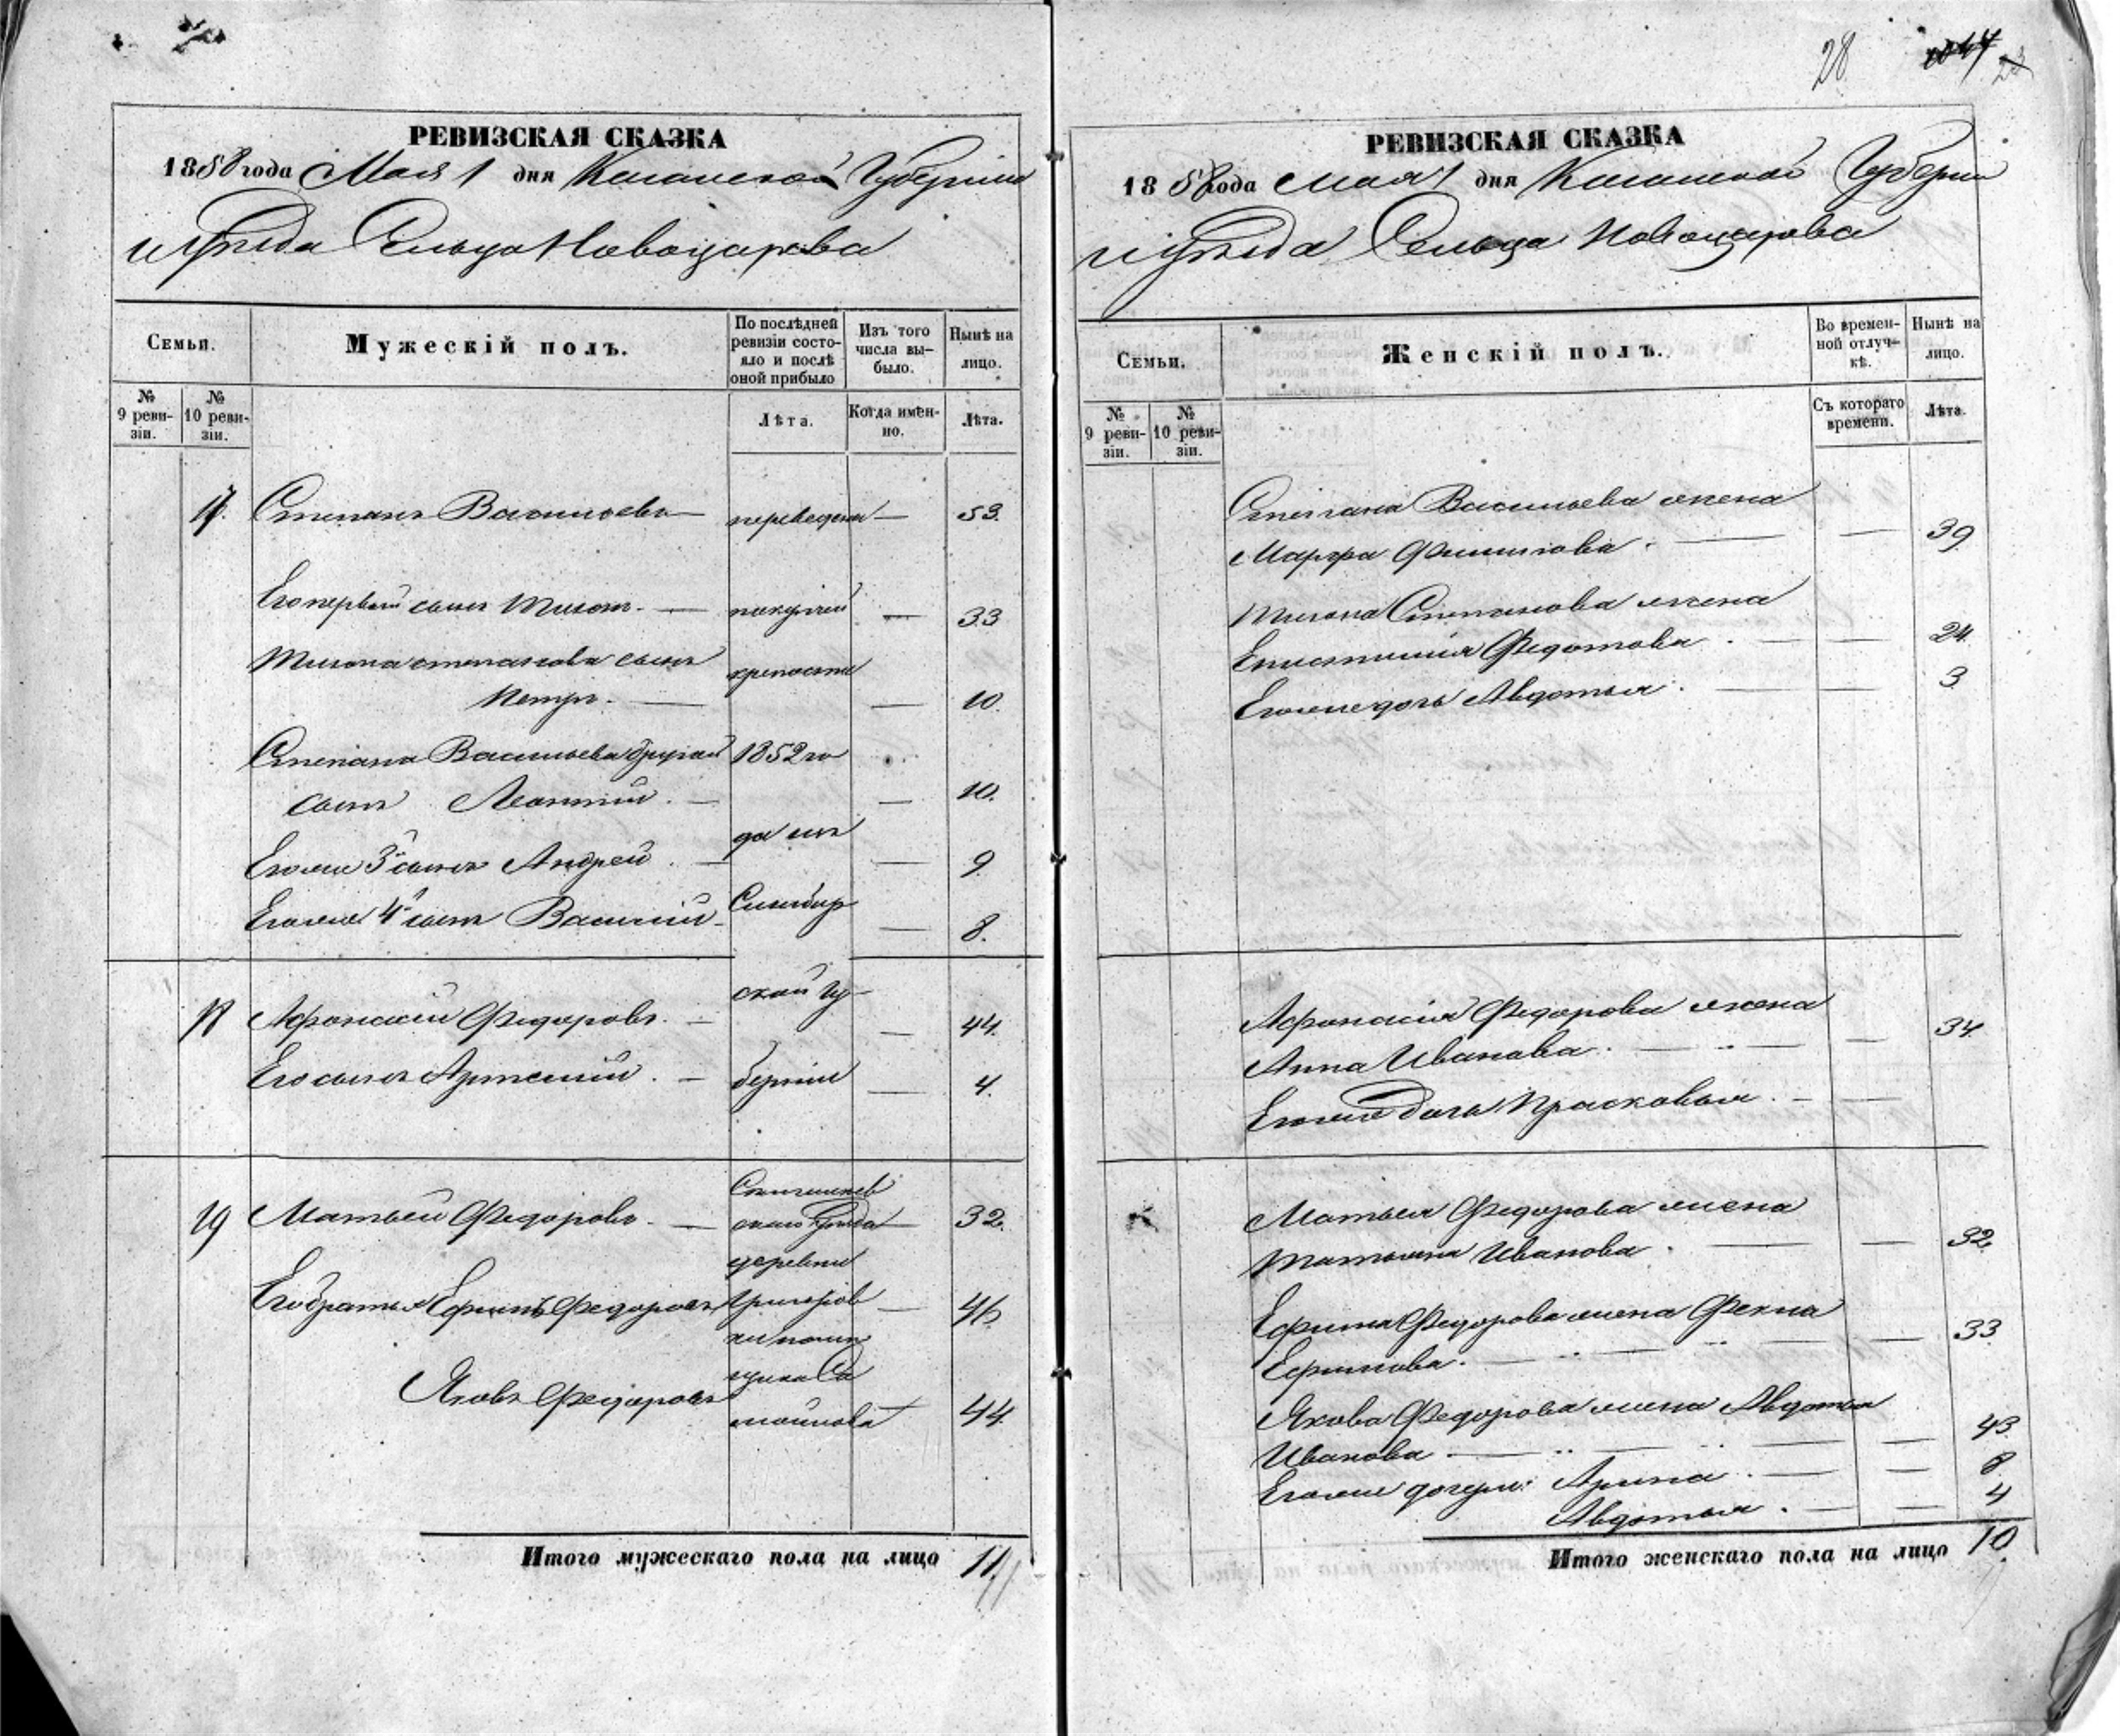 28
РЕВИЗСКАЯ СКАЗКА
1858 года Мая 1 дня Казанской Губерніи
и уѣзда Сельца Новоцарева
Семьи.
Мужескій полъ.
По послѣдней ревизіи состояло и послѣ оной прибыло
Изъ того числа выбыло.
Нынѣ на лицо.
№ 9 ревизіи.
№ 10 ревизіи.
Лѣта.
Когда именно.
Лѣта.
17. Степанъ Васильевъ — переведены — 53.
Его первый сынъ Тихон. — покупкой — 33
Тихона степанова сынъ крепости
Петръ. — — 10.
Степана Васильева другой 1852 го
сынъ Леонтий. — — 10.
да изъ
Его же 3й сынъ Андрей. — — 9
Симбир
Его же 4й сынъ Василий — — 8.
ской гу
18 Афонасий Федоровъ. — — 44.
Его сынъ Артемий. — бернии — 4.
Сенгилеев
19 Матвей Федоровъ. — скаго уѣзда — 32.
деревни
Его братья Ефимъ Федоровъ — 46
Яковъ Федоровъ 44.
Итого мужескаго пола на лицо 11.
РЕВИЗСКАЯ СКАЗКА
1858 года мая 1 дня Казанской Губерніи
и уѣзда Сельца Новоцарева
Семьи.
Женскій полъ.
Во временной отлучкѣ.
Нынѣ на лицо.
№ 9 ревизіи.
№ 10 ревизіи.
Съ котораго времени.
Лѣта.
Степана Васильева жена
Марфа Филипова. — — 39
Тихона Степанова жена
Епистимия Федотова. — — 24.
Его же дочь Авдотья. — — 3
Афонасія Федорова жена
Анна Иванова. — — 34.
Его же дочь Прасковья. — —
Матвея Федорова жена
Татьяна Иванова. — — 32.
Ефима Федорова жена Фекла
Ефимова. — — 33
Якова Федорова жена Авдотья
Иванова — — 43
Его же дочери: Арина. — — 8
Авдотья. — — 4
Итого женскаго пола на лицо 10